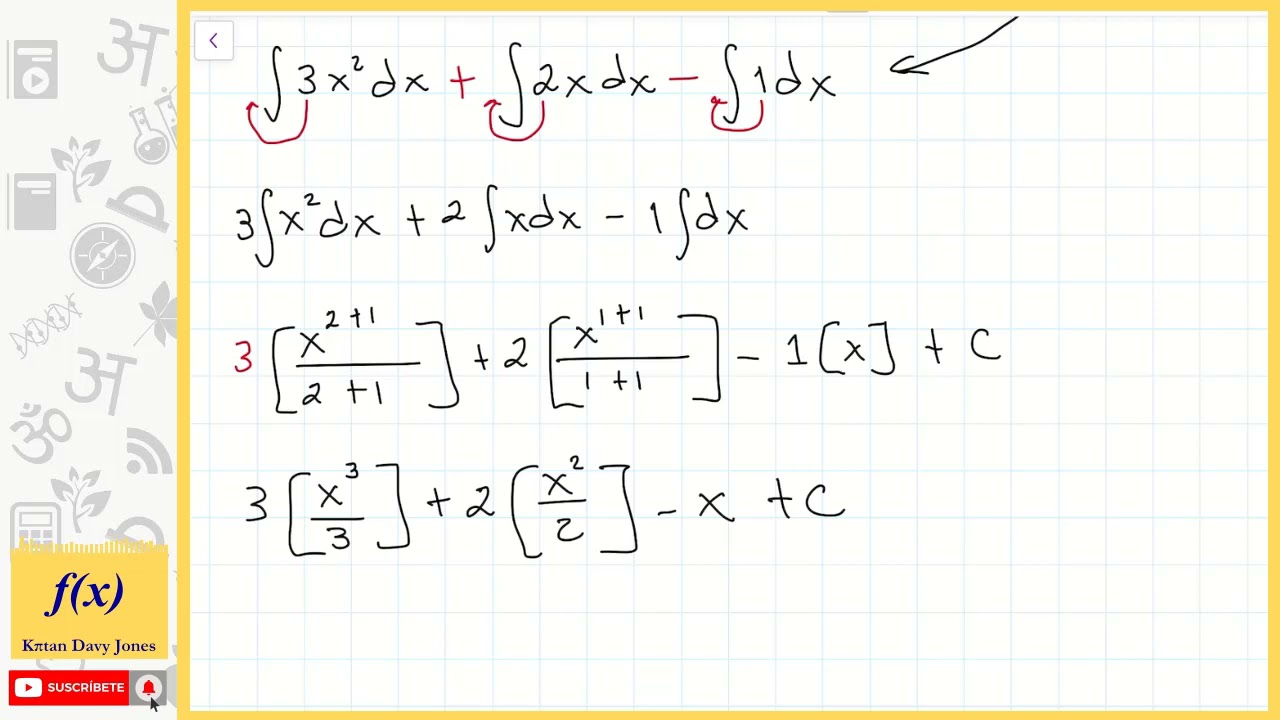 ∫3x²dx + ∫2xdx − ∫1dx
3∫x²dx + 2∫xdx − 1∫dx
3[x²⁺¹/2+1] + 2[x¹⁺¹/1+1] − 1[x] + C
3[x³/3] + 2[x²/2] − x + C
f(x)
Kπtan Davy Jones
SUSCRÍBETE